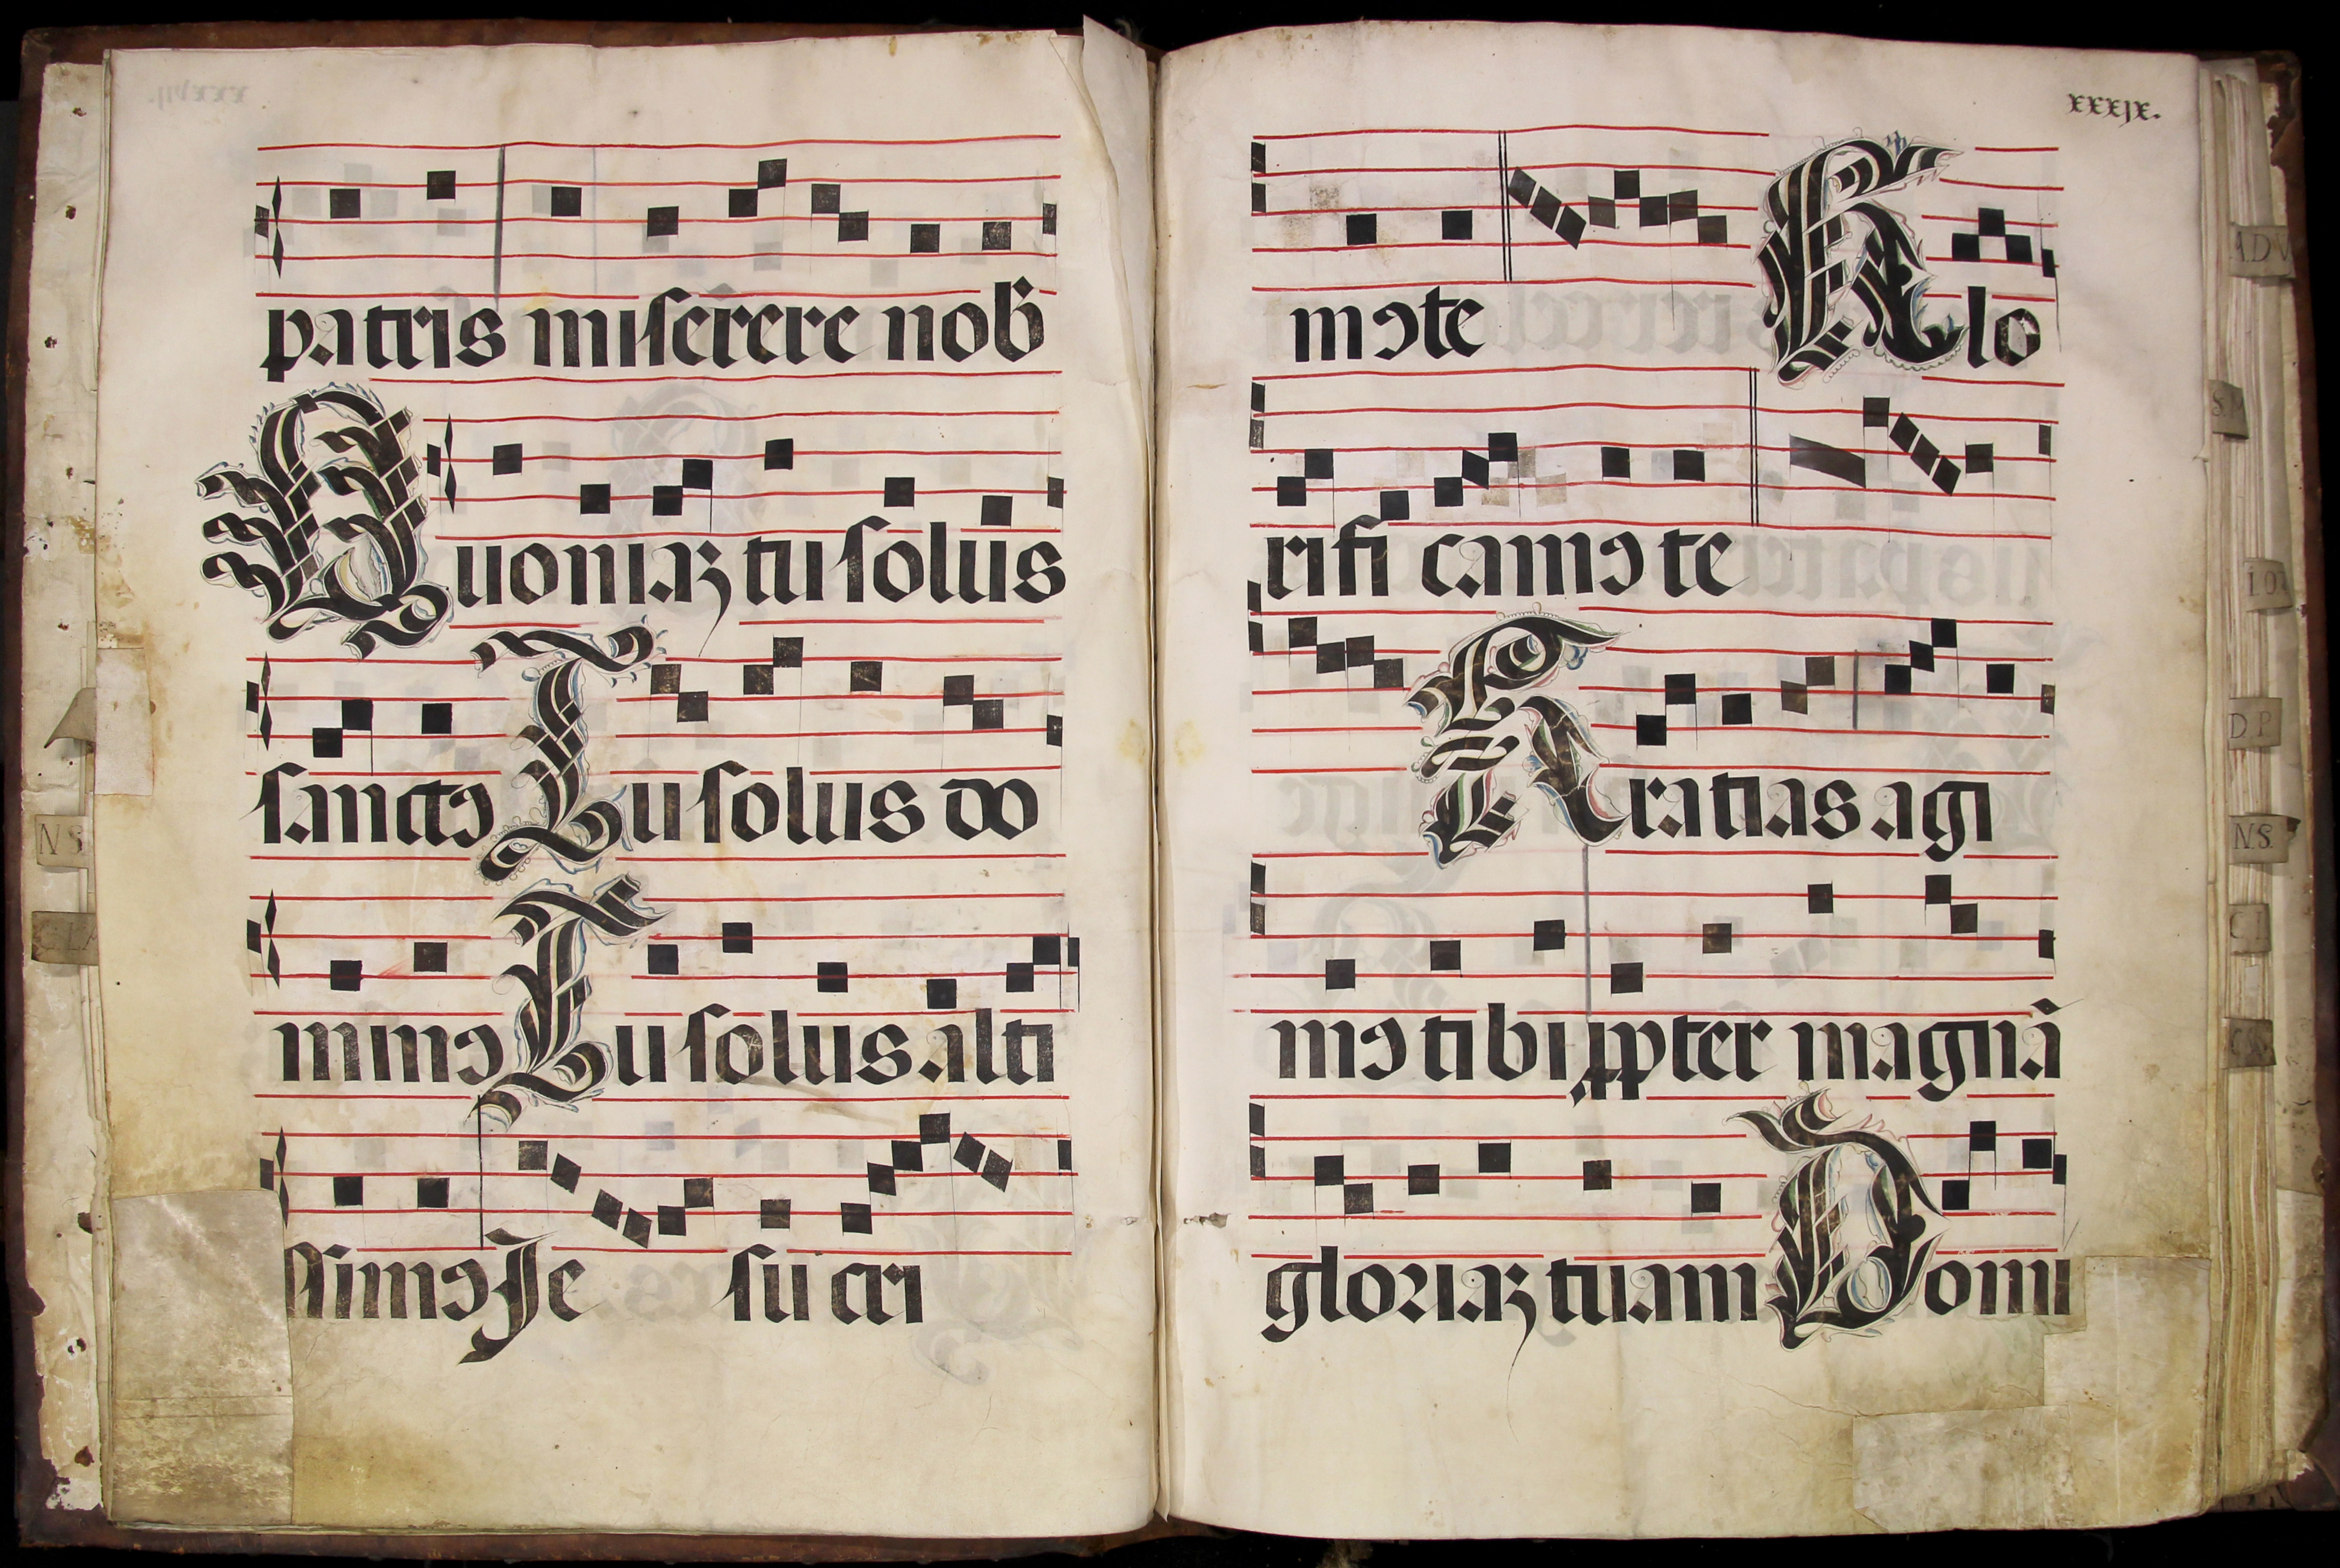 patris miserere nob
Quoniaꝫ tu solus
sanctꝰ Tu solus do
minꝰ Tu solus alti
ssimꝰ Je su cri
xxxjx.
mꝰte Glo
rifi camꝰ te
Gratias agi
mꝰ tibi ꝓpter magnã
gloriaꝫ tuam Domi
N.S.
D.P.
N.S.